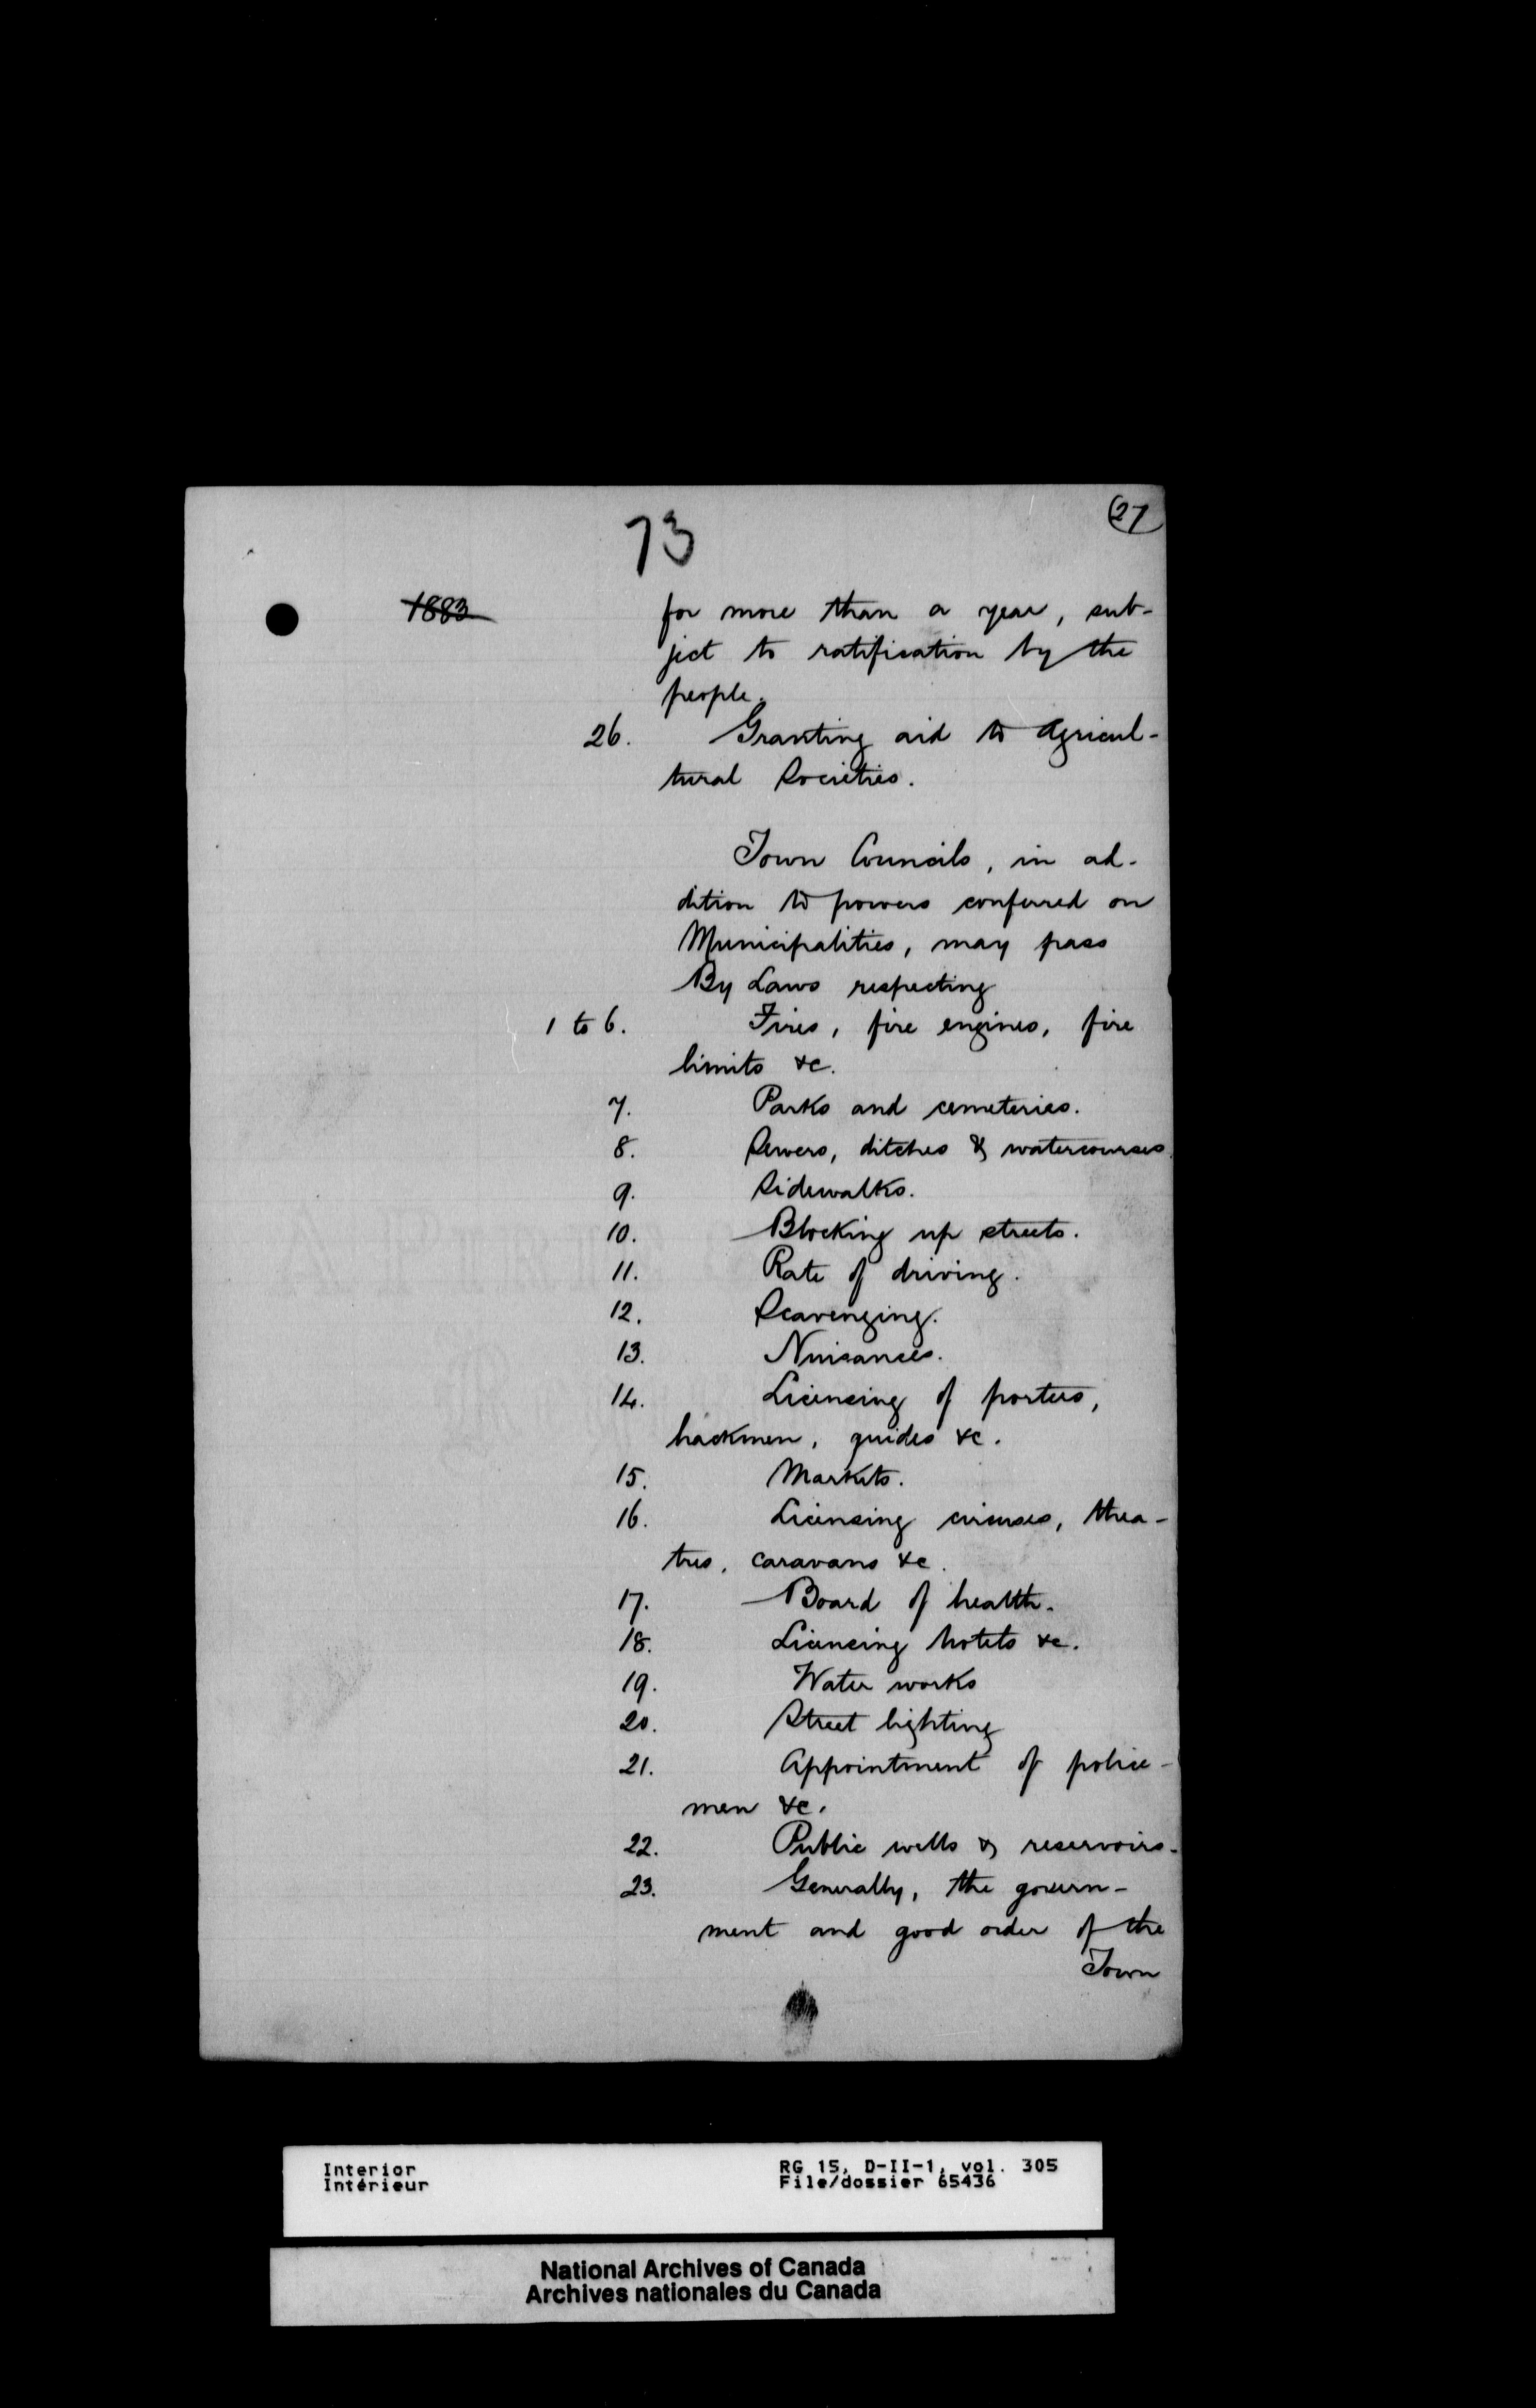 27
73
1883 for more than a year, sub-
ject to ratification by the
people.
26. Granting aid to Agricul-
tural Societies.
Town Councils, in ad-
dition to powers conferred on
Municipalities, may pass
By Laws respecting
1 to 6. Fires, fire engines, fire
limits &c.
7. Parks and cemeteries.
8. Sewers, ditches & watercourses.
9. Sidewalks.
10. Blocking up streets.
11. Rate of driving.
12. Scavenging.
13. Nuisances.
14. Licensing of porters,
hackmen, guides &c.
15. Markets.
16. Licensing circuses, thea-
tres, caravans &c.
17. Board of health.
18. Licensing hotels &c.
19. Water works
20. Street lighting
21. Appointment of police-
men &c.
22. Public wells & reservoirs.
23. Generally, the govern-
ment and good order of the
Town
Interior RG 15, D-II-1, vol. 305
Intérieur File/dossier 65436
National Archives of Canada
Archives nationales du Canada